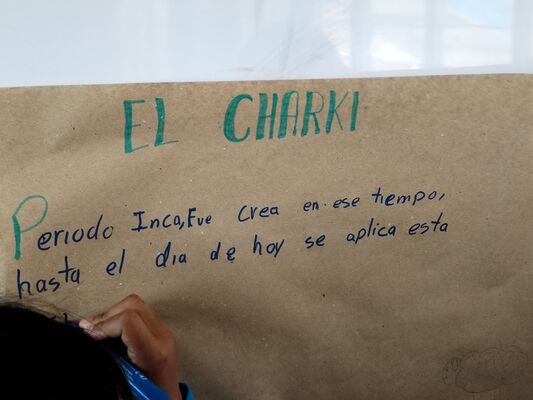 EL CHARKI
Periodo Inca, Fue crea en ese tiempo,
hasta el dia de hoy se aplica esta